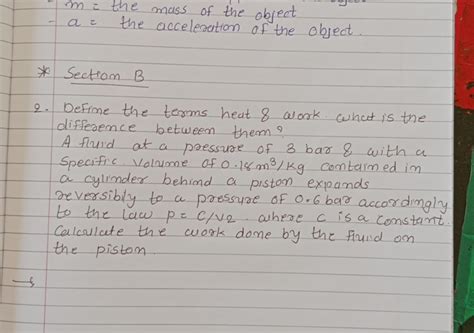 m = the mass of the object
- a = the acceleration of the object.
* Section B
2. Define the terms heat & work what is the
difference between them?
A fluid at a pressure of 3 bar & with a
specific volume of 0.18 m³/kg contained in
a cylinder behind a piston expands
reversibly to a pressure of 0.6 bar accordingly
to the law p = C/V2. where C is a constant.
Calculate the work done by the fluid on
the piston.
→